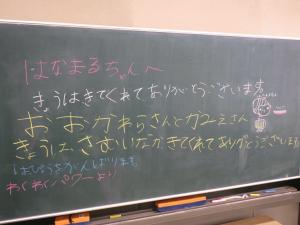 はなまるちゃんへ
きょうはきてくれてありがとうございます
おおがわらさんとかえさん
きょうは、さむいなかきてくれてありがとうございます
はっぴょうをがんばります
わくわくパワーより